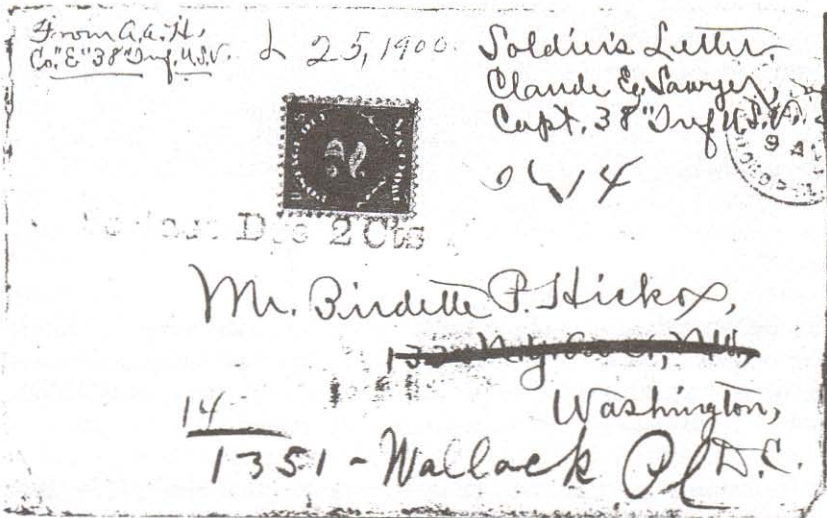 From A.A.H.,
Co. "E" 38" Inf. U.S.V.
25, 1900
Soldier's Letter.
Claude E. Sawyer,
Capt. 38" Inf. U.S.V.
9 A
2
Due 2 Cts
14
Mr. Birdette P. Hickox,
Washington,
D.C.
14
1351 - Wallack Pl